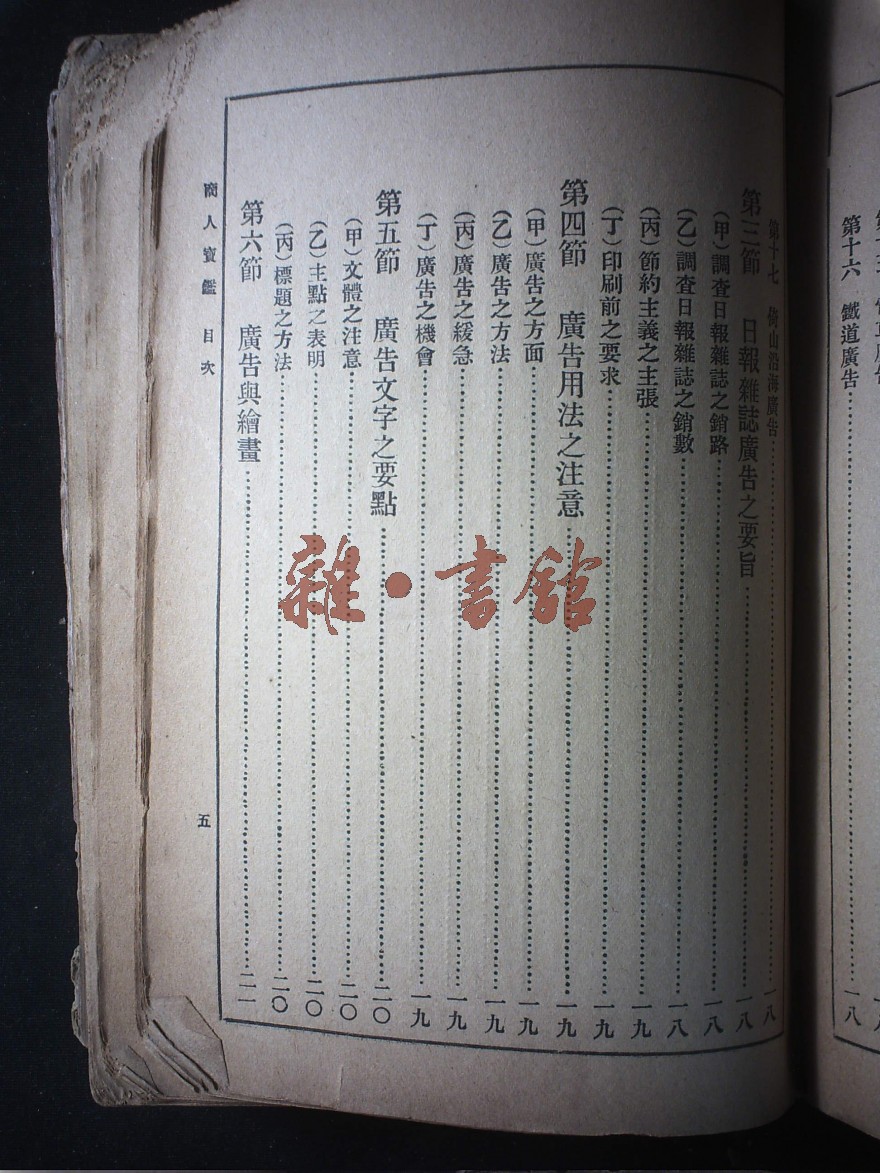 第十六　鐵道廣告……一八
第十七　倚山沿海廣告……一八
第三節　日報雜誌廣告之要旨……一八
（甲）調查日報雜誌之銷路……一八
（乙）調查日報雜誌之銷數……一八
（丙）節約主義之主張……一九
（丁）印刷前之要求……一九
第四節　廣告用法之注意……一九
（甲）廣告之方面……一九
（乙）廣告之方法……一九
（丙）廣告之緩急……一九
（丁）廣告之機會……一九
第五節　廣告文字之要點……二〇
（甲）文體之注意……二〇
（乙）主點之表明……二〇
（丙）標題之方法……二〇
第六節　廣告與繪畫……二一
商人寶鑑　目次　五
雜·書館